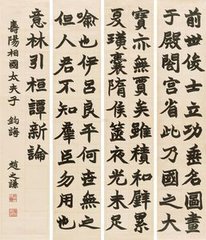 前世俊士立功垂名圖畫
于殿閣宫省此乃國之大
寶亦無賈矣雖積和璧累
夏璜囊隋侯篋夜光未足
喻也伊呂良平何世無之
但人君不知羣臣勿用也
意林引桓譚新論
壽陽相國太夫子 鈞誨
趙之謙